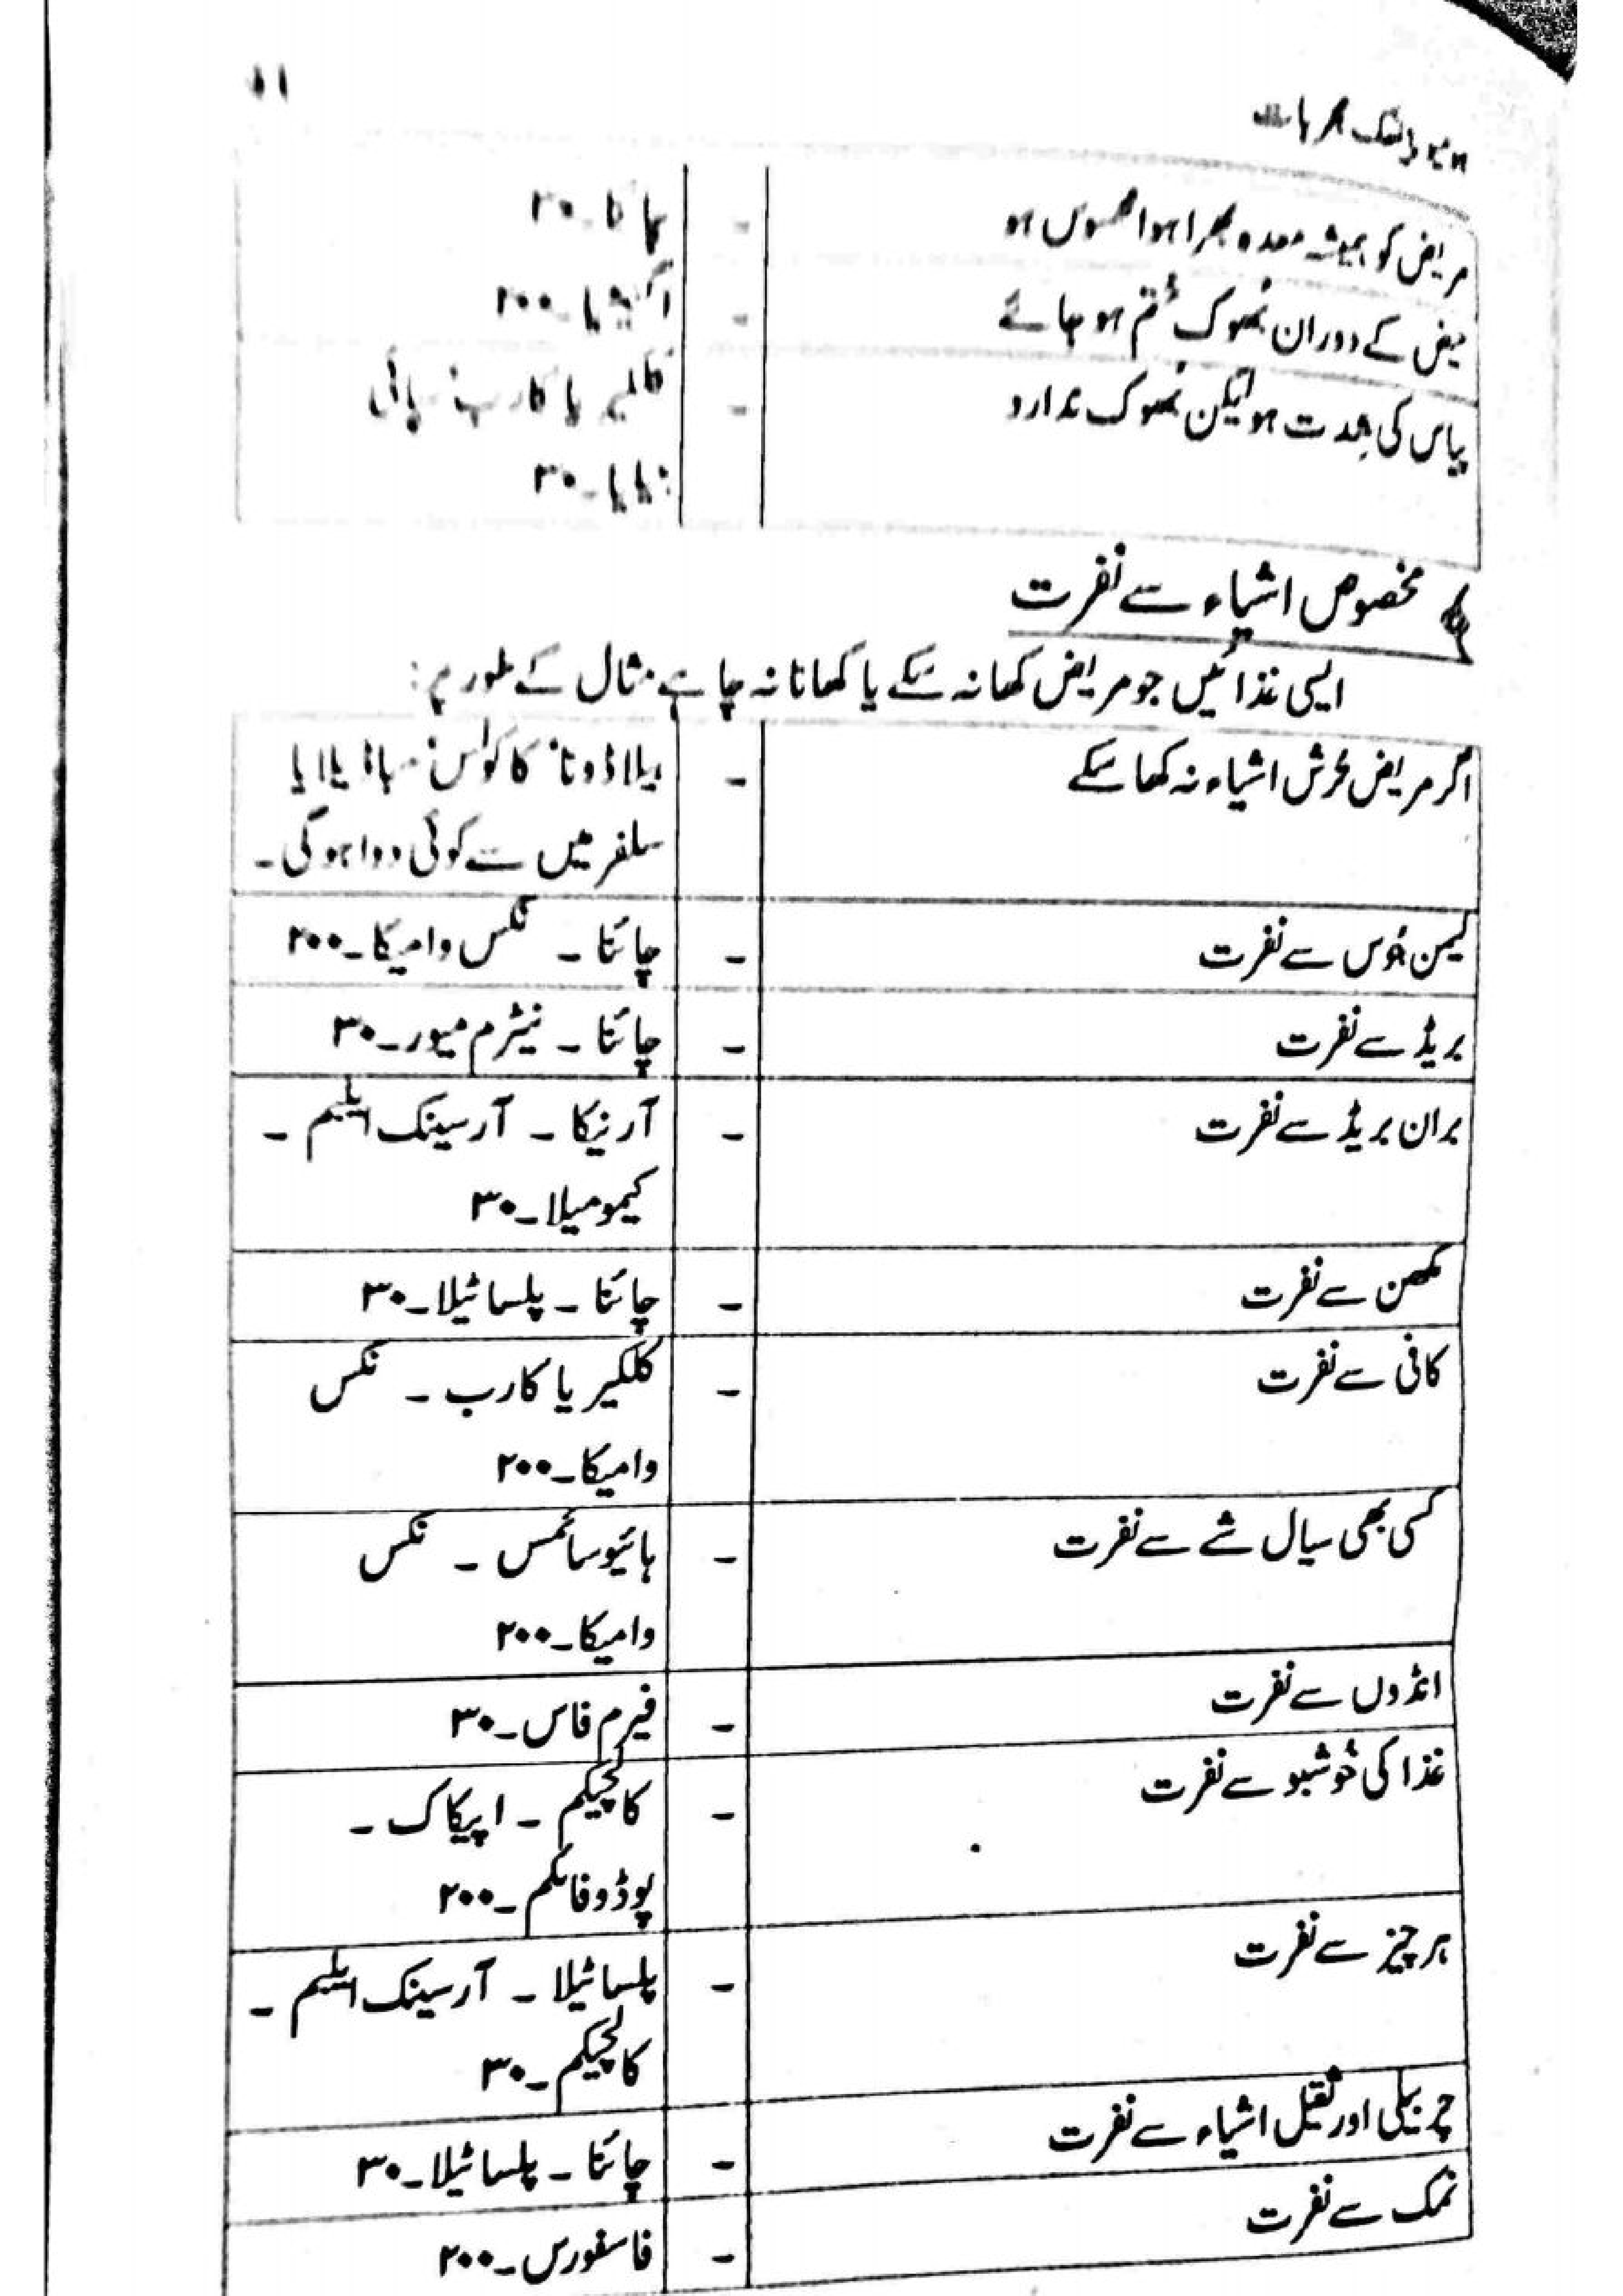 ۱۱
مریض کو ہمیشہ معدہ بھرا ہوا محسوس ہو - ۳۰
حیض کے دوران بھوک ختم ہو جائے - ۲۰۰
پیاس کی شدت ہو لیکن بھوک ندارد - کلکیریا کارب
۳۰
مخصوص اشیاء سے نفرت
ایسی غذائیں جو مریض کھا نہ سکے یا کھانا نہ چاہے مثال کے طور پر:
اگر مریض ترش اشیاء نہ کھا سکے - بیلاڈونا کاکولس
سلفر میں سے کوئی دوا ہوگی۔
لیمن جُوس سے نفرت - چائنا ۔ نکس وامیکا۔۲۰۰
بریڈ سے نفرت - چائنا ۔ نیٹرم میور۔۳۰
بران بریڈ سے نفرت - آرنیکا ۔ آرسینک ایلبم ۔
کیمومیلا۔۳۰
مکھن سے نفرت - چائنا ۔ پلساٹیلا۔۳۰
کافی سے نفرت - کلکیریا کارب ۔ نکس
وامیکا۔۲۰۰
کسی بھی سیال شے سے نفرت - ہائیوسائمس ۔ نکس
وامیکا۔۲۰۰
انڈوں سے نفرت - فیرم فاس۔۳۰
غذا کی خُوشبو سے نفرت - کالچیکم ۔ اپیکاک ۔
پوڈوفائلم ۔۲۰۰
ہر چیز سے نفرت - پلساٹیلا ۔ آرسینک ایلبم ۔
کالچیکم۔۳۰
چربیلی اور ثقیل اشیاء سے نفرت - چائنا ۔ پلساٹیلا۔۳۰
نمک سے نفرت - فاسفورس۔۲۰۰